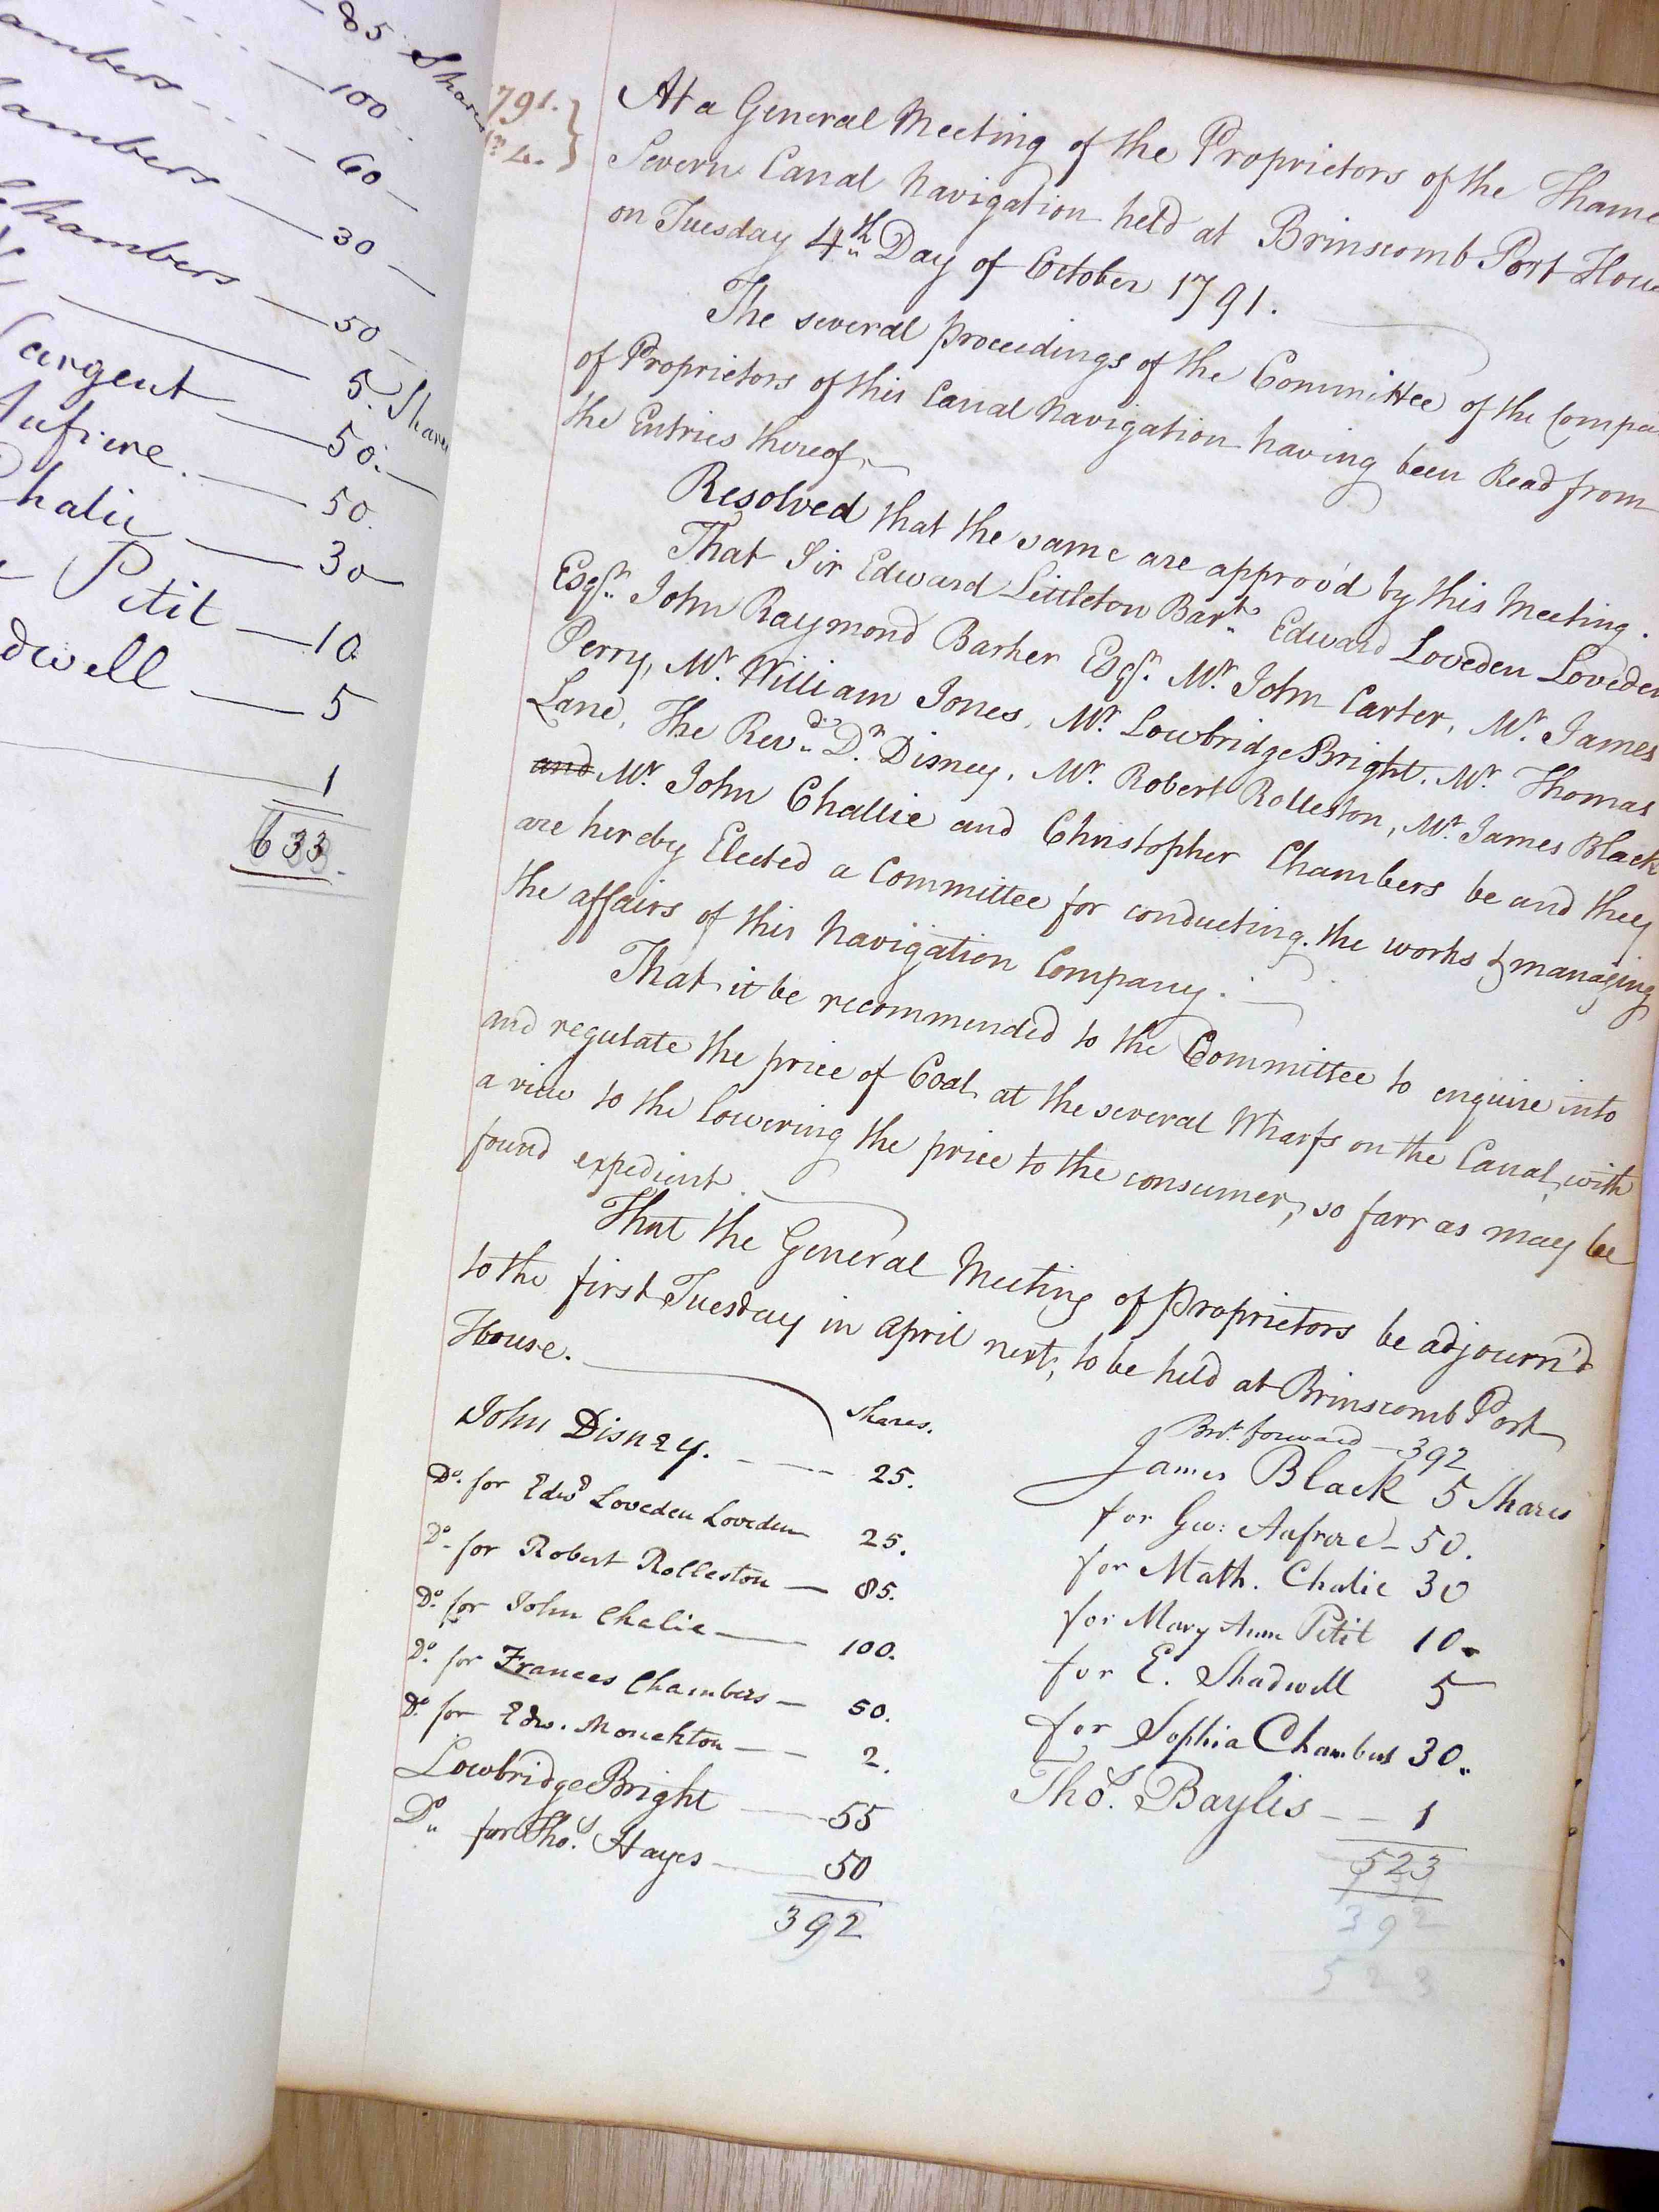 85 Shares
ambers 100
ambers 60
hambers 30
50
5. Shares
argent 50
Aufrere 50.
Chalie 30
Petit 10
dwell 5
1
633.
791.
4.
At a General Meeting of the Proprietors of the Thame
Severn Canal Navigation held at Brinscomb Port Hou
on Tuesday 4th Day of October 1791.
The several proceedings of the Committee of the Compa
of Proprietors of this Canal Navigation having been Read from
the Entries thereof,
Resolved that the same are approv'd by this Meeting.
That Sir Edward Littleton Bart. Edward Loveden Loveden
Esqr. John Raymond Barker Esqr. Mr. John Carter, Mr. James
Perry, Mr. William Jones, Mr. Lowbridge Bright, Mr. Thomas
Lane, The Revd. Dr. Disney, Mr. Robert Rolleston, Mr. James Black
and Mr. John Challie and Christopher Chambers be and they
are hereby Elected a Committee for conducting the works & managing
the affairs of this Navigation Company.
That it be recommended to the Committee to enquire into
and regulate the price of Coal, at the several Wharfs on the Canal, with
a view to the lowering the price to the consumer, so farr as may be
found expedient
That the General Meeting of Proprietors be adjourn'd
to the first Tuesday in April next, to be held at Brinscomb Port
House.
Shares.
John Disney. 25.
Do. for Edwd Loveden Loveden 25.
Do. for Robert Rolleston 85.
Do. for John Chalie 100.
Do. for Frances Chambers 50.
Do. for Edw. Monckton 2.
Lowbridge Bright 55
Do. for Thos. Hayes 50
392
Brt. forward 392
James Black 5 Shares
for Geo: Aufrere 50.
for Math. Chalie 30
for Mary Ann Petit 10.
for E. Shadwell 5
for Sophia Chambers 30.
Thos. Baylis 1
523
392
523